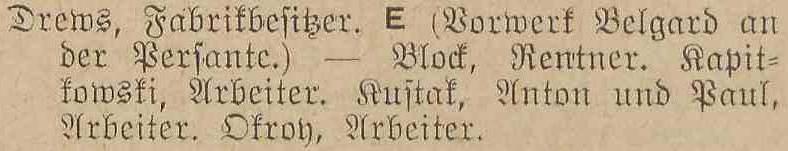 Drews, Fabrikbesitzer. E (Vorwerk Belgard an
der Persante.) — Block, Rentner. Kapit-
kowski, Arbeiter. Kustak, Anton und Paul,
Arbeiter. Okroy, Arbeiter.